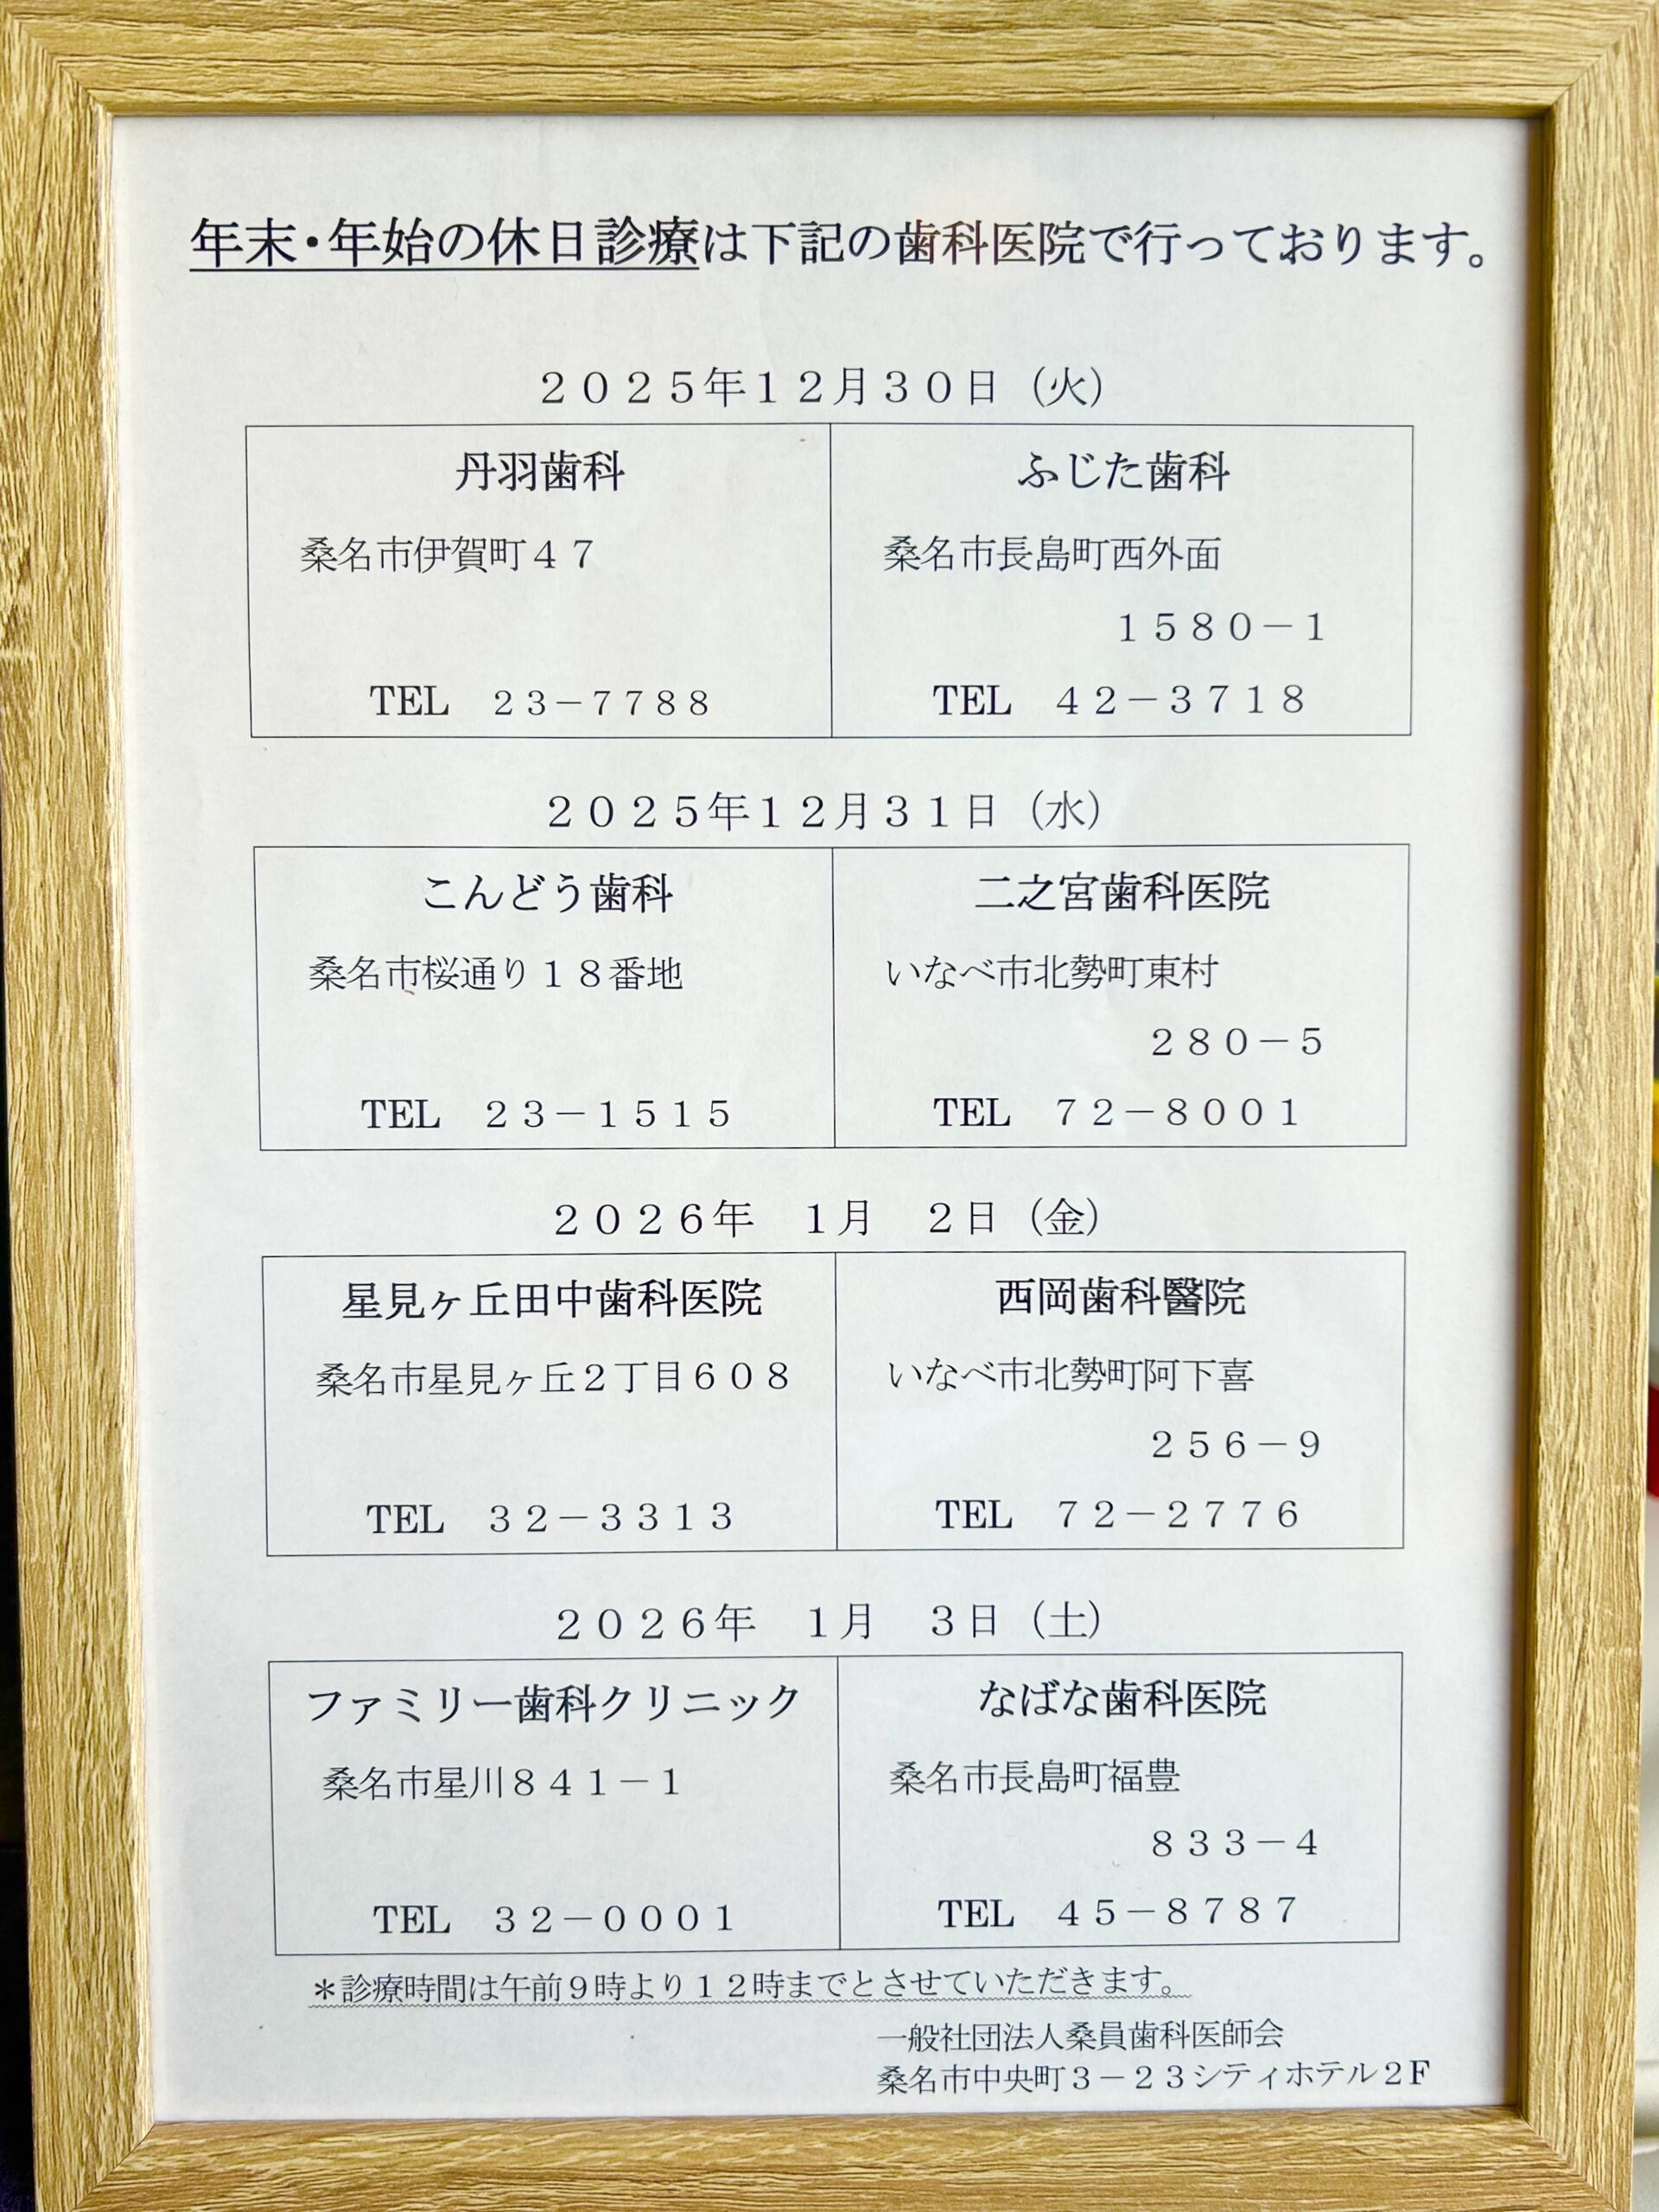 年末・年始の休日診療は下記の歯科医院で行っております。
２０２５年１２月３０日（火）
丹羽歯科
桑名市伊賀町４７
TEL　２３－７７８８
ふじた歯科
桑名市長島町西外面
１５８０－１
TEL　４２－３７１８
２０２５年１２月３１日（水）
こんどう歯科
桑名市桜通り１８番地
TEL　２３－１５１５
二之宮歯科医院
いなべ市北勢町東村
２８０－５
TEL　７２－８００１
２０２６年　１月　２日（金）
星見ヶ丘田中歯科医院
桑名市星見ヶ丘２丁目６０８
TEL　３２－３３１３
西岡歯科醫院
いなべ市北勢町阿下喜
２５６－９
TEL　７２－２７７６
２０２６年　１月　３日（土）
ファミリー歯科クリニック
桑名市星川８４１－１
TEL　３２－０００１
なばな歯科医院
桑名市長島町福豊
８３３－４
TEL　４５－８７８７
＊診療時間は午前９時より１２時までとさせていただきます。
一般社団法人桑員歯科医師会
桑名市中央町３－２３シティホテル２F